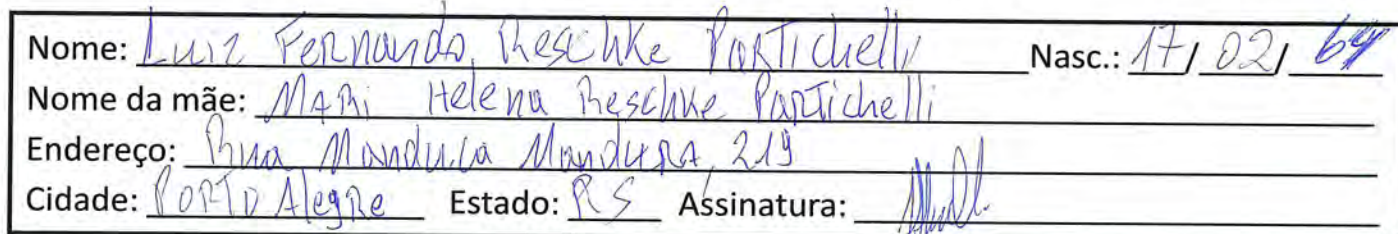 Nome: Luiz Fernando Reschke Partichelli Nasc.: 17/02/64
Nome da mãe: Mari Helena Reschke Partichelli
Endereço: Rua Manduca 219
Cidade: Porto Alegre Estado: RS Assinatura: